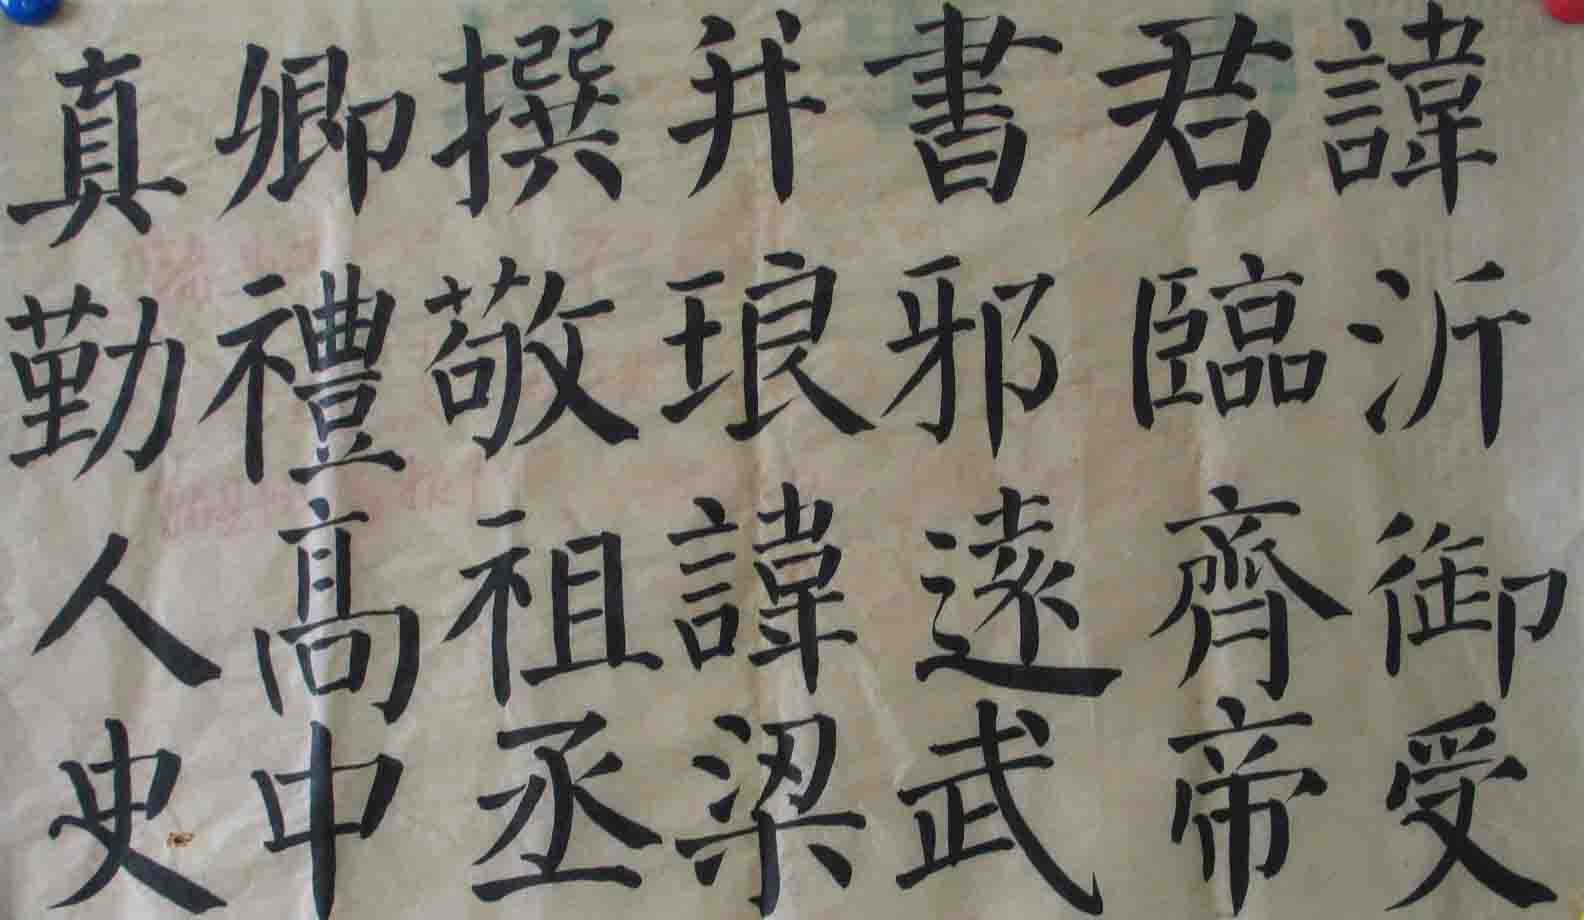 真卿撰并書君諱
勤禮敬琅邪臨沂
人髙祖諱遠齊御
史中丞梁武帝受